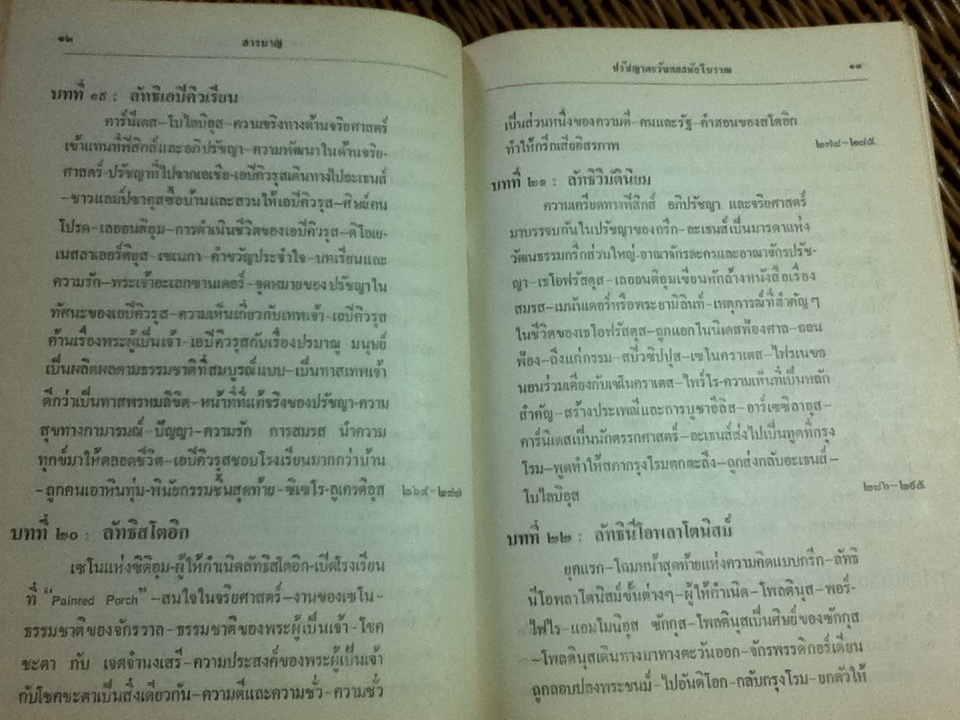 ๑๒ สารบาญ
บทที่ ๑๙ : ลัทธิเอปีคิวเรียน
คาร์นีเดส-โบไลบิอุส-ความจริงทางด้านจริยศาสตร์
เข้าแทนที่ฟิสิกส์และอภิปรัชญา-ความพัฒนาในด้านจริย-
ศาสตร์-ปรัชญาที่ไปจากเอเชีย-เอปีคิวรุสเดินทางไปอะเธนส์
-ชาวแลมป์ซาคุสซื้อบ้านและสวนให้เอปีคิวรุส-ศิษย์คน
โปรด-เลออนติอุม-การดำเนินชีวิตของเอปีคิวรุส-ดิโอเย-
เนสลาเออร์ติอุส-เซเนกา-คำขวัญประจำใจ-บทเรียนและ
ความรัก-พระเจ้าอะเลกซานเดอร์-จุดหมายของปรัชญาใน
ทัศนะของเอปีคิวรุส-ความเห็นเกี่ยวกับเทพเจ้า-เอปีคิวรุส
ค้านเรื่องพระผู้เป็นเจ้า-เอปีคิวรุสกับเรื่องปรมาณู มนุษย์
เป็นผลิตผลตามธรรมชาติที่สมบูรณ์แบบ-เป็นทาสเทพเจ้า
ดีกว่าเป็นทาสพรหมลิขิต-หน้าที่ที่แท้จริงของปรัชญา-ความ
สุขทางกามารมณ์-ปัญญา-ความรัก การสมรส นำความ
ทุกข์มาให้ตลอดชีวิต-เอปีคิวรุสชอบโรงเรียนมากกว่าบ้าน
-ถูกคนเอาหินทุ่ม-พินัยกรรมชิ้นสุดท้าย-ซิเซโร-ลูเครติอุส ๒๖๙-๒๗๗
บทที่ ๒๐ : ลัทธิสโตอิก
เซโนแห่งซิติอุม-ผู้ให้กำเนิดลัทธิสโตอิก-เปิดโรงเรียน
ที่ "Painted Porch"-สนใจในจริยศาสตร์-งานของเซโน-
ธรรมชาติของจักรวาล-ธรรมชาติของพระผู้เป็นเจ้า-โชค
ชะตา กับ เจตจำนงเสรี-ความประสงค์ของพระผู้เป็นเจ้า
กับโชคชะตาเป็นสิ่งเดียวกัน-ความดีและความชั่ว-ความชั่ว
ปรัชญาตะวันตกสมัยโบราณ
เป็นส่วนหนึ่งของความดี-คนและรัฐ-คำสอนของสโตอิก
ทำให้กรีกเสียอิสรภาพ ๒๗๘-๒๘๕
บทที่ ๒๑ : ลัทธิวิมตินิยม
ความเครียดทางฟิสิกส์ อภิปรัชญา และจริยศาสตร์
มาบรรจบกันในปรัชญาของกรีก-อะเธนส์เป็นมารดาแห่ง
วัฒนธรรมกรีกส่วนใหญ่-อาณาจักรอะครและอาณาจักรปรัช-
ญา-เธโอฟรัสตุส-เลออนติอุมเขียนหักล้างหนังสือเรื่อง
สมรส-เมนันเดอร์หรือพระยามิลินท์-เหตุการณ์ที่สำคัญๆ
ในชีวิตของเธโอฟรัสตุส-ถูกแอกโนนิเดสฟ้องศาล-ถอน
ฟ้อง-ถึงแก่กรรม-สปิวซิปปุส-เซโนคราเตส-ไฟรเนขอ
นอนร่วมเตียงกับเซโนคราเตส-ไพร์โร-ความเห็นที่เป็นหลัก
สำคัญ-สร้างประเพณีและการบูชาอีลิส-อาร์เซซิลาอุส-
คาร์นีเดสเป็นนักตรรกศาสตร์-อะเธนส์ส่งไปเป็นทูตที่กรุง
โรม-พูดทำให้สภากรุงโรมตกตะลึง-ถูกส่งกลับอะเธนส์-
โบไลบิอุส ๒๘๖-๒๙๕
บทที่ ๒๒ : ลัทธินีโอพลาโตนิสม์
ยุคแรก-โฉมหน้าสุดท้ายแห่งความคิดแบบกรีก-ลัทธิ
นีโอพลาโตนิสม์ชั้นต่างๆ-ผู้ให้กำเนิด-โพลตินุส-พอร์-
ไฟไร-แอมโมนิอุส ซักกุส-โพลตินุสเป็นศิษย์ของซักกุส
-โพลตินุสเดินทางมาทางตะวันออก-จักรพรรดิกอร์เดียน
ถูกลอบปลงพระชนม์-ไปอันติโอก-กลับกรุงโรม-ยกตัวให้